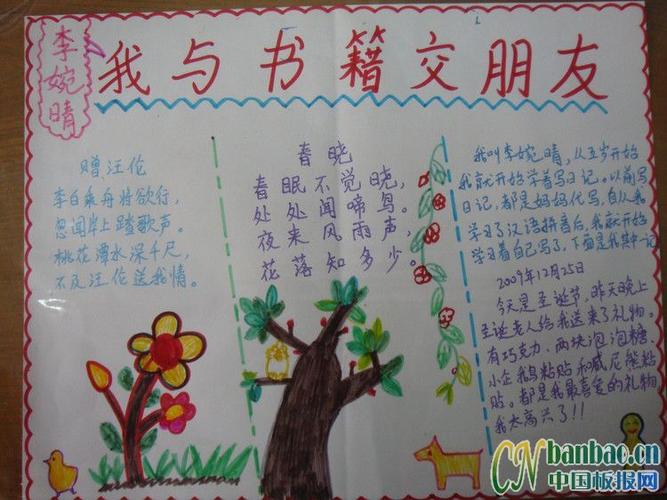 李婉晴
我与书籍交朋友
赠汪伦
李白乘舟将欲行，
忽闻岸上踏歌声。
桃花潭水深千尺，
不及汪伦送我情。
春晓
春眠不觉晓，
处处闻啼鸟。
夜来风雨声，
花落知多少。
我叫李婉晴，从五岁开始
我就开始学着写日记。以前写
日记，都是妈妈代写，自从我
学习了汉语拼音后，我就开始
学习着自己写了，下面是我其中一记
2009年12月25日
今天是圣诞节，昨天晚上
圣诞老人给我送来了礼物。
有巧克力、两块泡泡糖、
小企鹅粘贴和威尼熊粘
贴。都是我最喜爱的礼物
我太高兴了！！
CNbanbao.cn
中国板报网